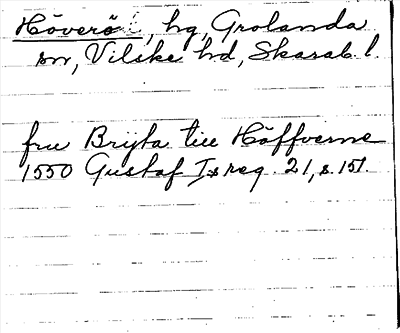 Höverö, hg, Grolanda
sn, Vilske hd, Skarab. l.
fru Bryta till Höffverne
1550 Gustaf I:s reg. 21, s. 151.